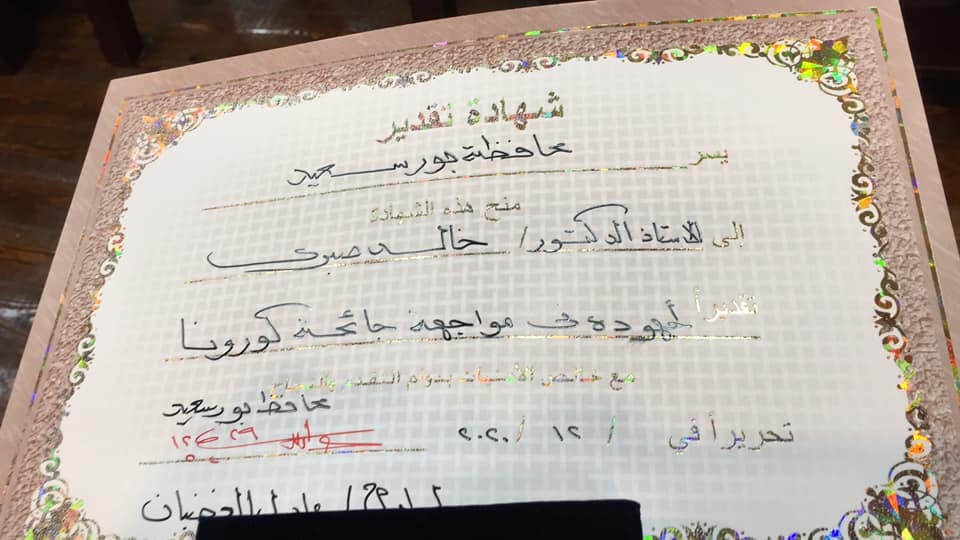 شهادة تقدير
يسر محافظة بورسعيد
منح هذه الشهادة
إلى الاستاذ الدكتور / خالد صبرى
تقديراً لجهوده فى مواجهة جائحة كورونا
مع خالص الأمنيات بدوام التقدم والنجاح
محافظ بورسعيد
تحريراً في / ١٢ / ٢٠٢٠
عادل الغضبان